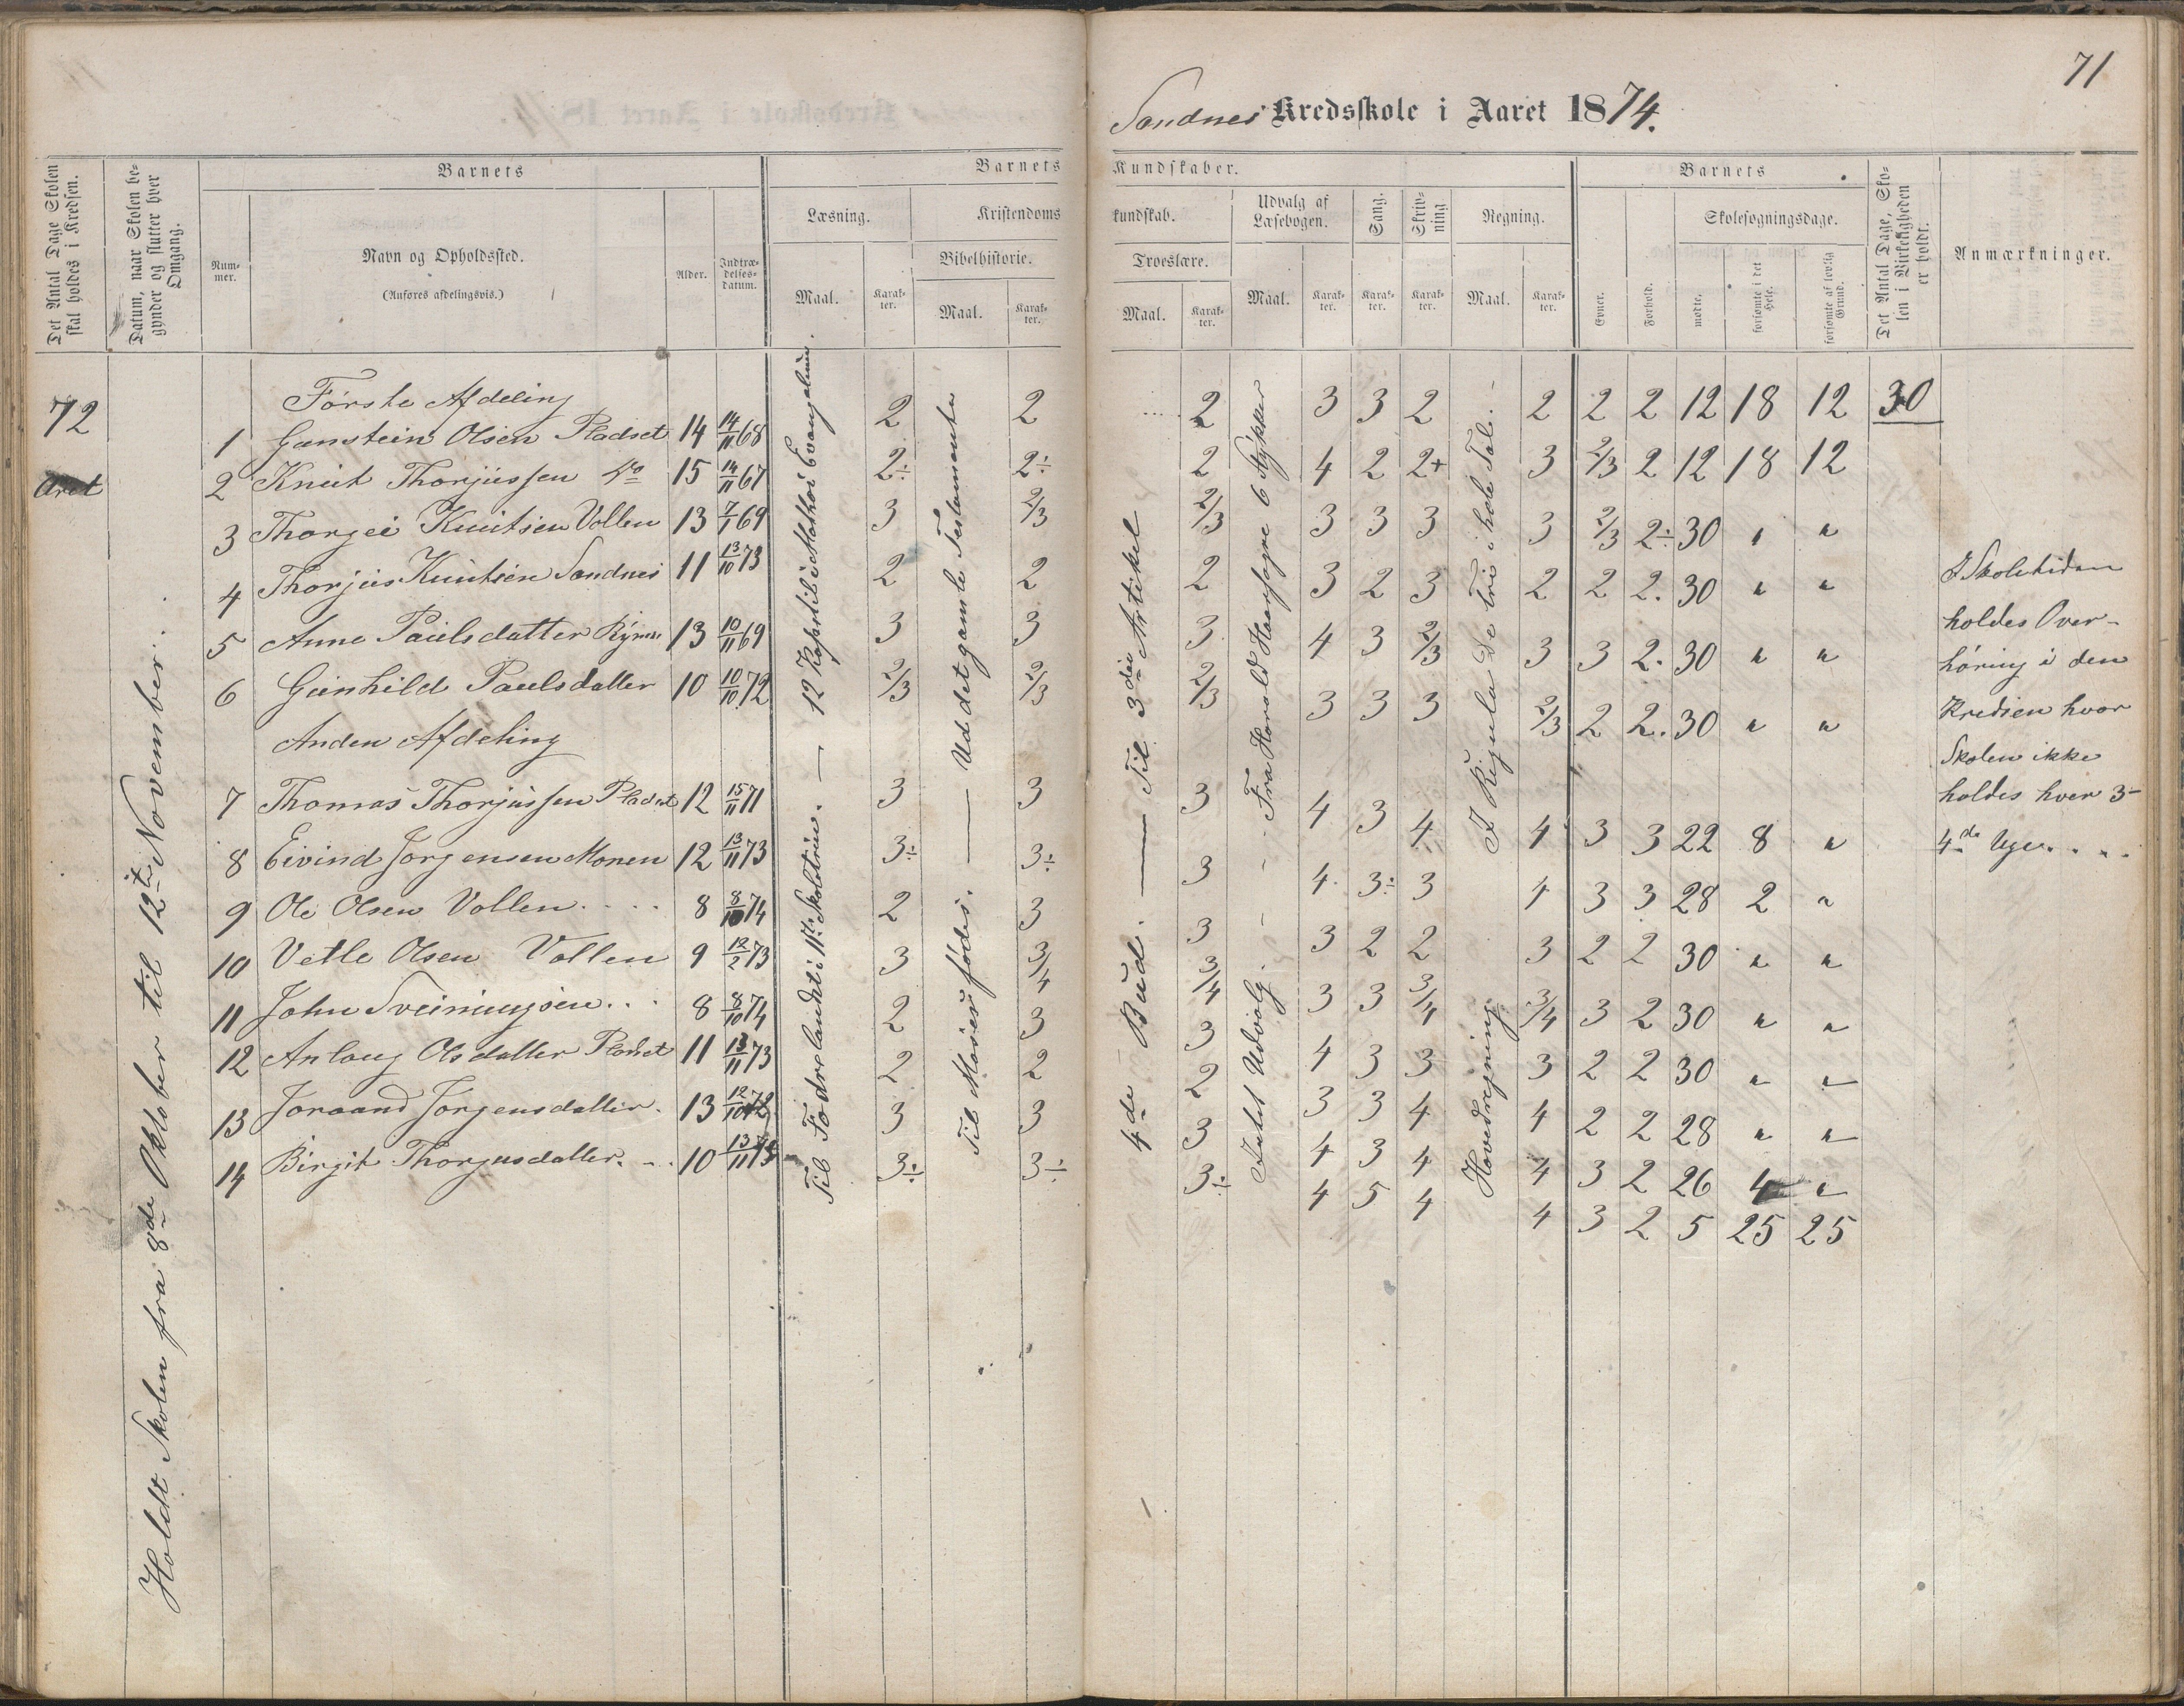 71
Sandnes Kredsskole i Aaret 1874.
Det Antal Dage Skolen skal holdes i Kredsen.
Datum, naar Skolen begynder og slutter hver Omgang.
Barnets
Nummer.
Navn og Opholdssted.
(Anføres afdelingsvis.)
Alder.
Indtrædelsesdatum.
Barnets Kundskaber.
Læsning.
Maal.
Karakter.
Kristendomskundskab.
Bibelhistorie.
Maal.
Karakter.
Troeslære.
Maal.
Karakter.
Udvalg af Læsebogen.
Maal.
Karakter.
Sang.
Karakter.
Skrivning
Karakter.
Regning.
Maal.
Karakter.
Barnets
Evner.
Forhold.
Skolesøgningsdage.
mødte.
forsømte i det Hele.
forsømte af lovlig Grund.
Det Antal Dage, Skolen i Virkeligheden er holdt.
Anmærkninger.
72
Aret
Holdt Skolen fra 8de Oktober til 12te November.
Første Afdeling
1 Gunstein Olsen Pladset 14 14/11 68 2 2 2 3 3 2 2 2 2 12 18 12 30
2 Knut Thorjussen do 15 14/11 67 2÷ 2÷ 2 4 2 2+ 3 2/3 2 12 18 12
3 Thorgei Knutsen Vollen 13 7/1 69 3 2/3 2/3 3 3 3 3 2/3 2÷ 30 " "
4 Thorjus Knutsen Sandnes 11 13/10 73 2 2 2 3 2 3 2 2 2. 30 " "
5 Anne Paulsdatter 13 10/11 69 3 3 3 4 3 2/3 3 3 2. 30 " "
6 Gunhild Paulsdatter 10 10/10 72 2/3 2/3 2/3 3 3 3 2/3 2 2. 30 " "
Anden Afdeling
7 Thomas Thorjussen Pladset 12 15/11 71 3 3 3 4 3 4 4 3 3 22 8 "
8 Eivind Jørgensen Monen 12 13/11 73 3÷ 3÷ 3 4. 3÷ 3 4 3 3 28 2 "
9 Ole Olsen Vollen 8 8/10 74 2 3 3 3 2 2 3 2 2 30 " "
10 Vetle Olsen Vollen 9 12/2 73 3 3/4 3/4 3 3 3/4 3/4 3 2 30 " "
11 John Sveinungsen 8 8/10 74 2 3 3 4 3 3 3 2 2 30 " "
12 Anlaug Olsdatter Pladset 11 13/11 73 2 2 2 3 3 4 4 2 2 28 " "
13 Joraand Jørgensdatter. 13 12/10 72 3 3 3 4 3 4 4 3 2 26 4 "
14 Birgit Thorjusdatter. 10 13/11 73 3÷ 3÷ 3÷ 4 5 4 4 3 2 5 25 25
Til Fædrelandet i 11te Skoletrin. — 12 Kapitel i Mathæi Evangelium.
Til Moses fødes. — Ud det gamle Testamente
4de Bud. — Til 3die Artikel
Intet Udvalg. - - - Fra Harald Haarfagre 6 Stykker
Hovedregning I Regula de tri i hele Tal. -
I Skoletiden
holdes Over-
høring i den
Kredsen hvor
Skolen ikke
holdes hver 3-
4de Uge.